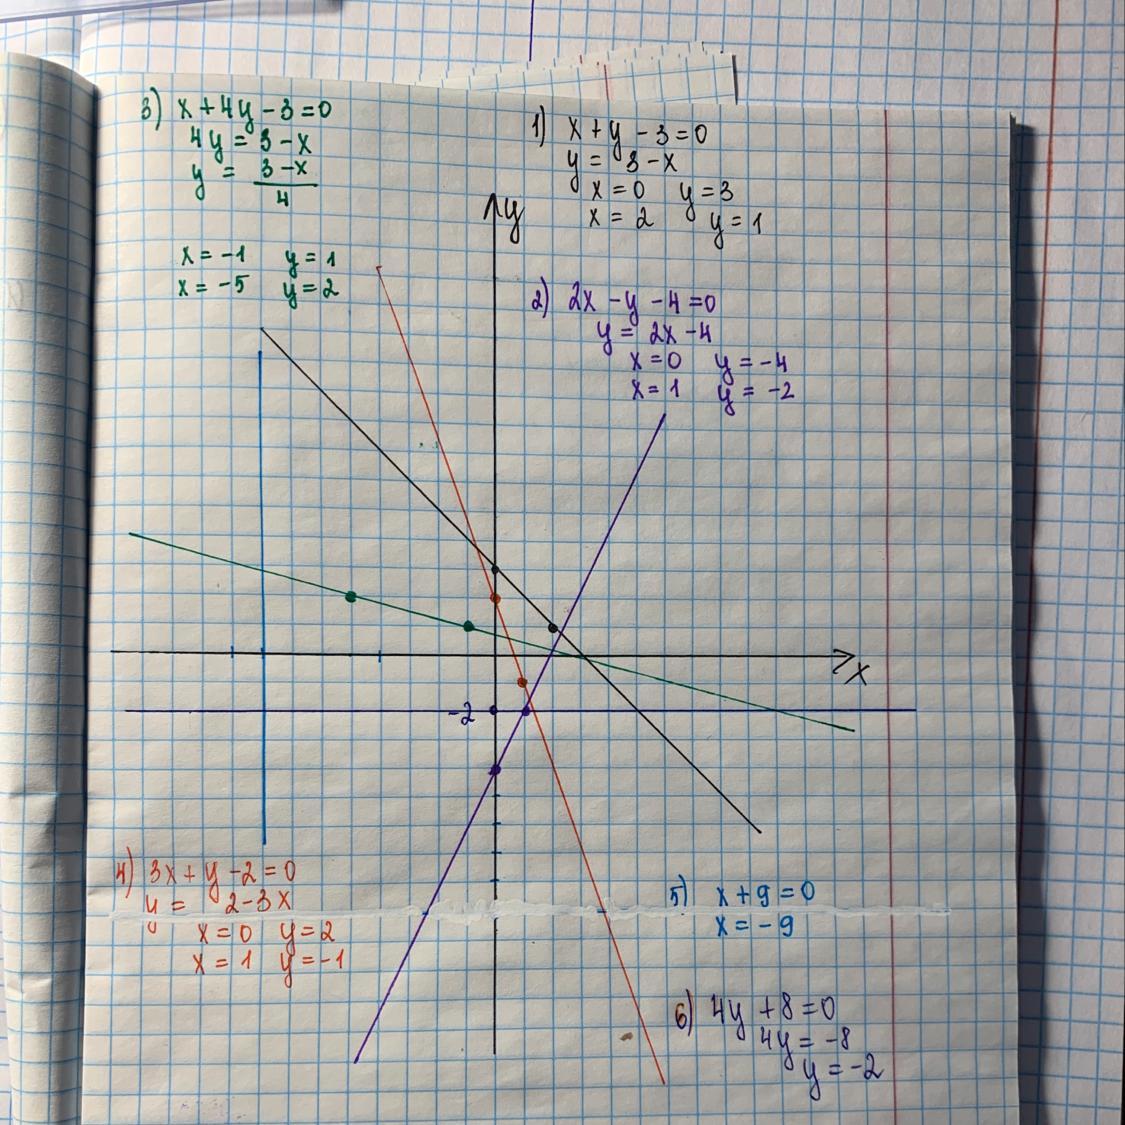 3) x + 4y - 3 = 0
4y = 3 - x
y = 3 - x
4
x = -1 y = 1
x = -5 y = 2
1) x + y - 3 = 0
y = 3 - x
x = 0 y = 3
x = 2 y = 1
y
2) 2x - y - 4 = 0
y = 2x - 4
x = 0 y = -4
x = 1 y = -2
x
-2
4) 3x + y - 2 = 0
y = 2 - 3x
x = 0 y = 2
x = 1 y = -1
5) x + 9 = 0
x = -9
6) 4y + 8 = 0
4y = -8
y = -2